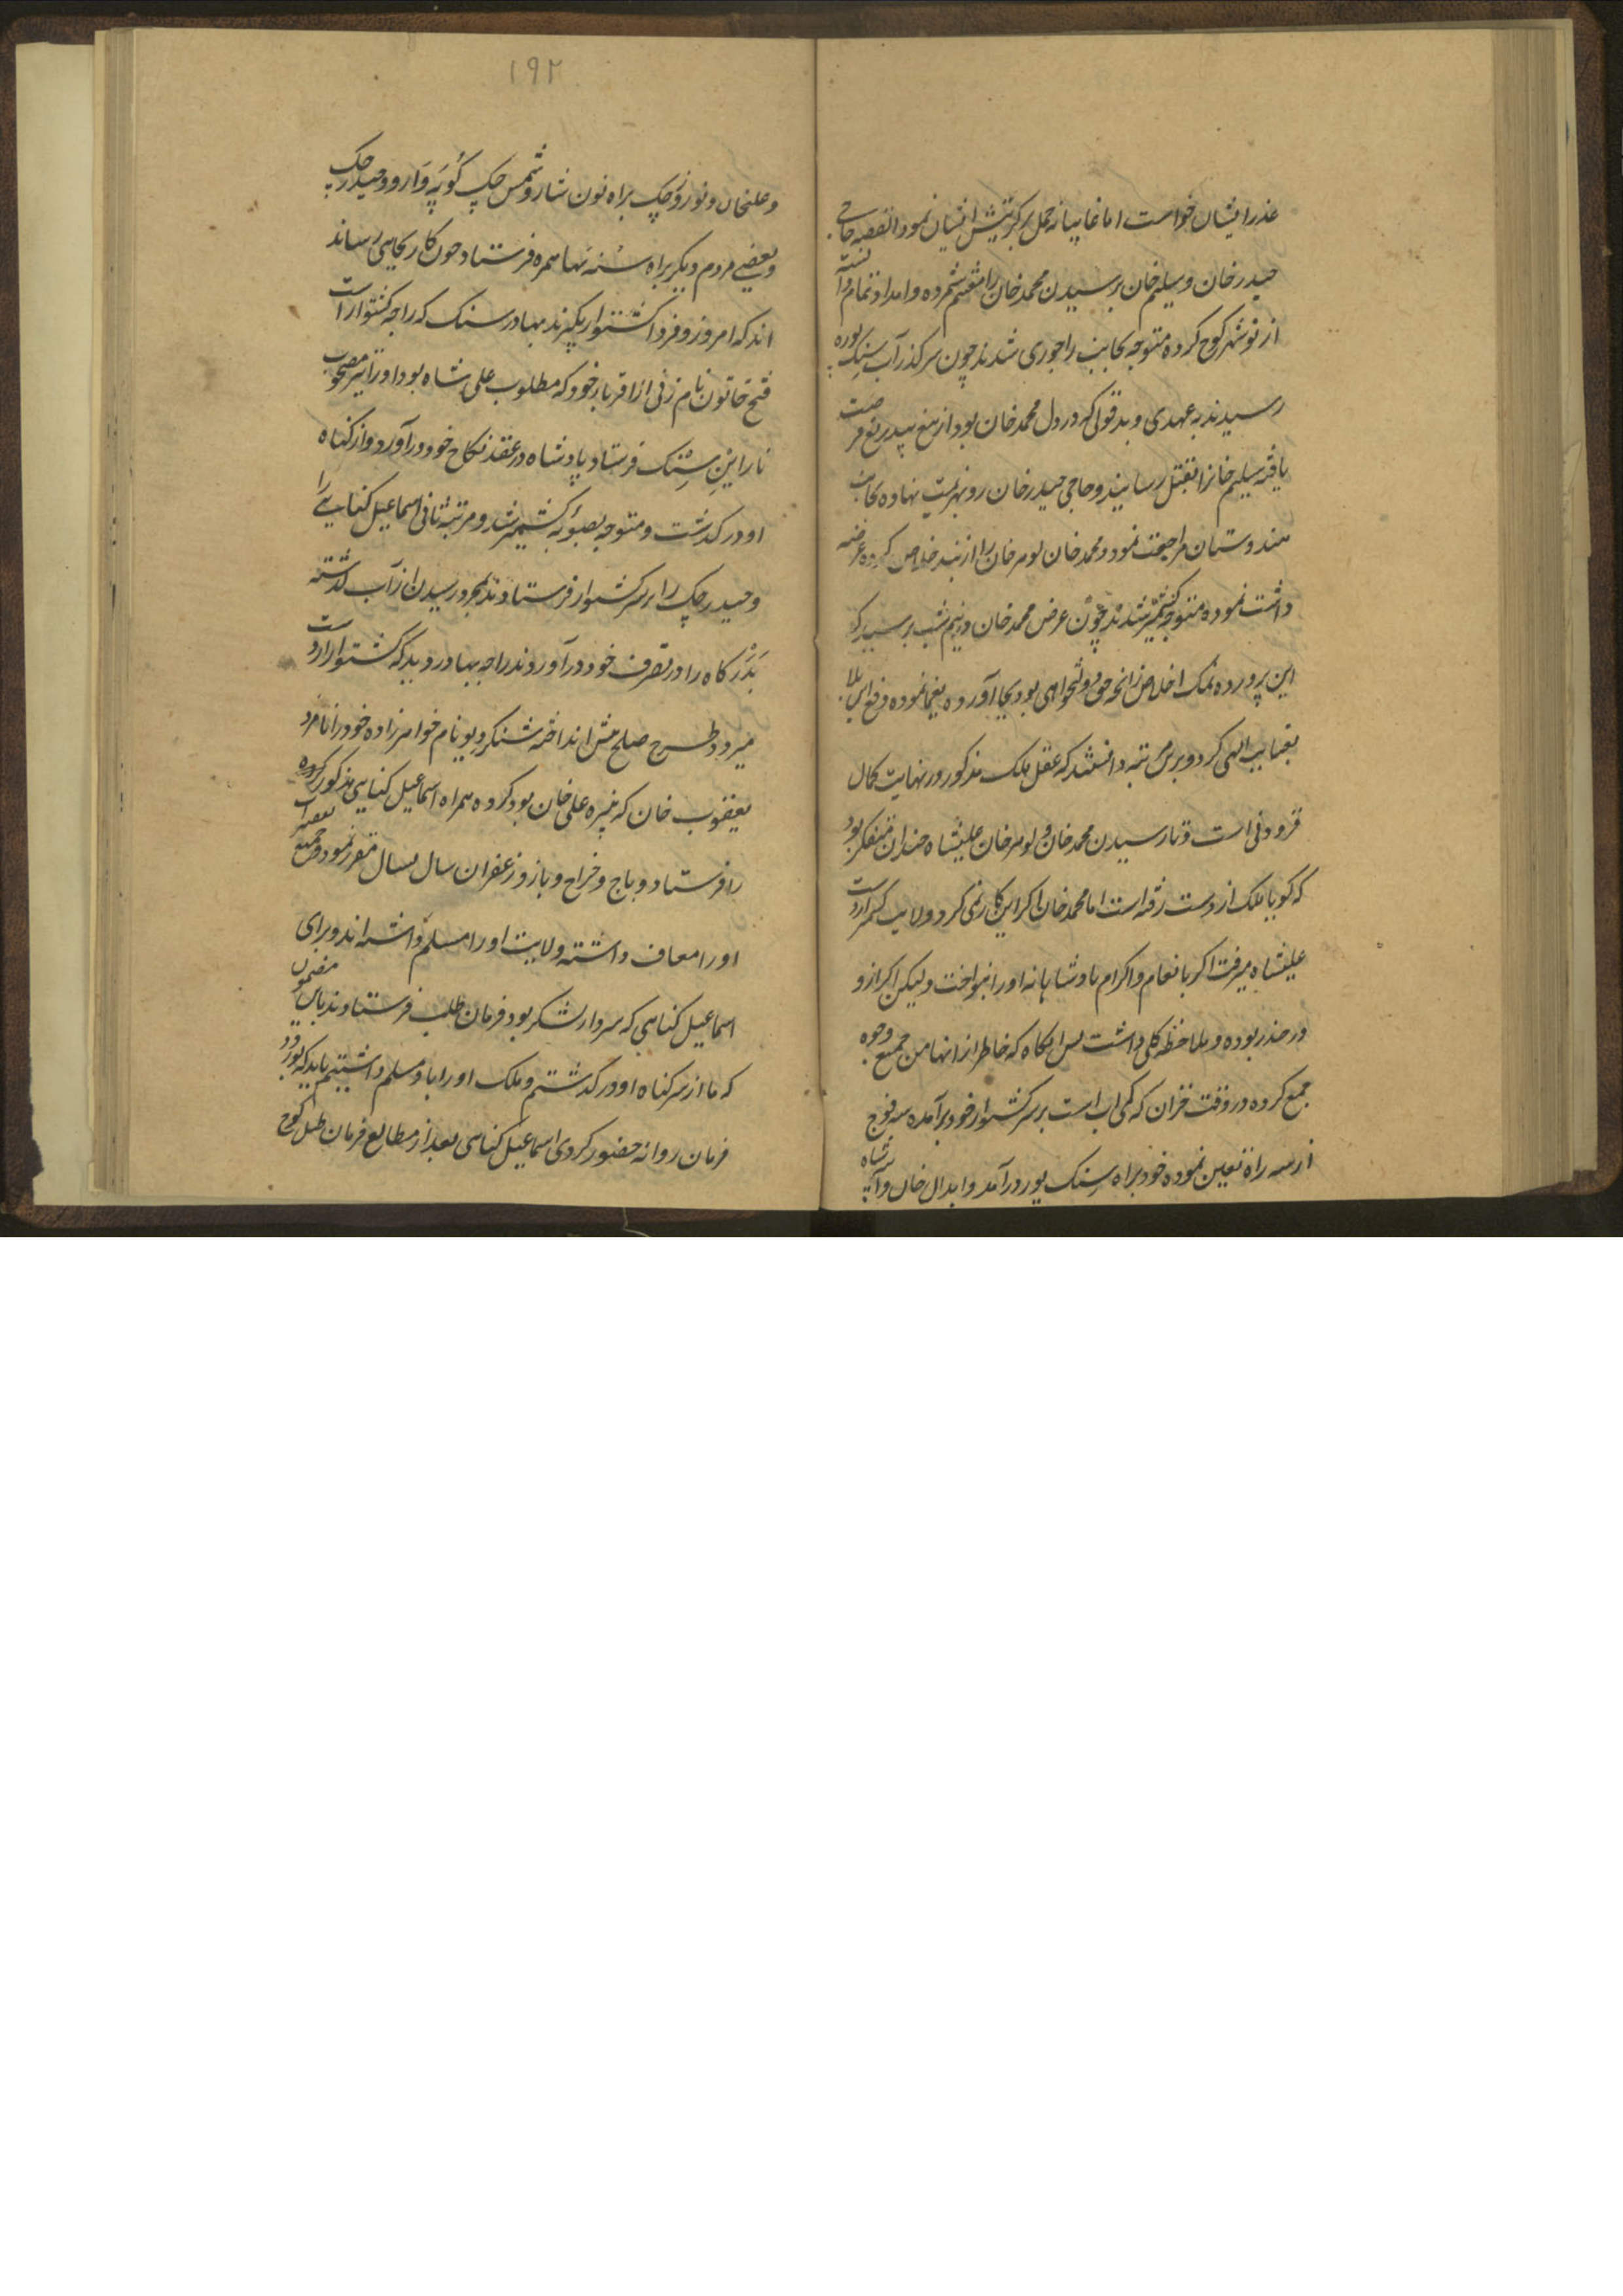 عذر ایشان خواست اما غایبانه حمل بر ایشان نمود القصه حاجی
حیدر خان و سلیم خان برسیدن محمد خان را مغتنم شمرده و امداد تمام دانسته
از نوشهر کوچ کرده متوجه بجانب راجوری شدند چون سرکذر آب
رسیدند به عهدی و بد قولی که در دل محمد خان بود از تیغ بیدریغ فرصت
یافته سلیم خانرا بقتل رسانیند و حاجی حیدر خان رو بهزیمت نهاده بجانب
هندوستان مراجعت نمود و محمد خان لوهر خان را از بند خلاص کرده عرضه
داشت نموده متوجه کشمیر شدند چون عرض محمد خان در نیم شب برسید که
این پرورده نمک اخلاص زانچه حق دولتخواهی بود بجا آورده نموده دفع این بلا
بعنایت الهی کرد و برین دانستند که عقل ملک مذکور در نهایت کمال
فزونی است و تا رسیدن محمد خان و لوهر خان علیشاه چندان متفکر بود
که کویا ملک از دست رفته است اما محمد خان اکر این کار نمی کرد ولایت کشمیر از دست
علیشاه میرفت اکر بانعام و اکرام پادشاهانه او را بنواخت ولیکن اکر ازو
در حذر بوده و ملاحظه کلی داشت پس انکاه که خاطر از انها من جمیع وجوه
جمع کرده در وقت خزان که کمی اب است بر سر کشتوار خود برآمده سه فوج
از سه راه تعین نموده خود براه سنک پور درآمد و ابدال خان و
۱۹۲
و علیخان و نوروز چک براه و شمس چک و حیدر چک
و بعضی مردم دیکر براه همره فرستاد چون کار بجایی رساند
اند که امروز و فردا کشتوار بکیرند بهادر سنک که راجه کشتوار است
فتح خاتون نام زنی از اقربا خود که مطلوب علی شاه بود او را نیز مصحوب
ناراین سنک فرستاد پادشاه در عقد نکاح خود درآورد و از کناه
او درکذشت و متوجه بصوب کشمیر شد و مرتبه ثانی اسماعیل کنایی را
و حیدر چک را بر سر کشتوار فرستادند بمجرد رسیدن از آب کذشته
را در تصرف خود درآوردند راجه بهادر دید که کشتوار از دست
میرود طرح صلح پیش انداخته نام خواهرزاده خود را نامزد
یعقوب خان که نبیره علی خان بود کرده همراه اسماعیل کنایی مذکور کرده
را فرستاد و باج و خراج و باز و زعفران سال بسال مقرر نمود و جمیع تقصیرات
او را معاف داشته ولایت او را مسلم داشته اند و برای
اسماعیل کنایی که سردار لشکر بود فرمان طلب فرستادند باین مضمون
که ما از سر کناه او درکذشتیم و ملک او را باو مسلم داشتیم باید که بورود
فرمان روانه حضور کردی اسماعیل کنایی بعد از مطالع فرمان طبل کوچ